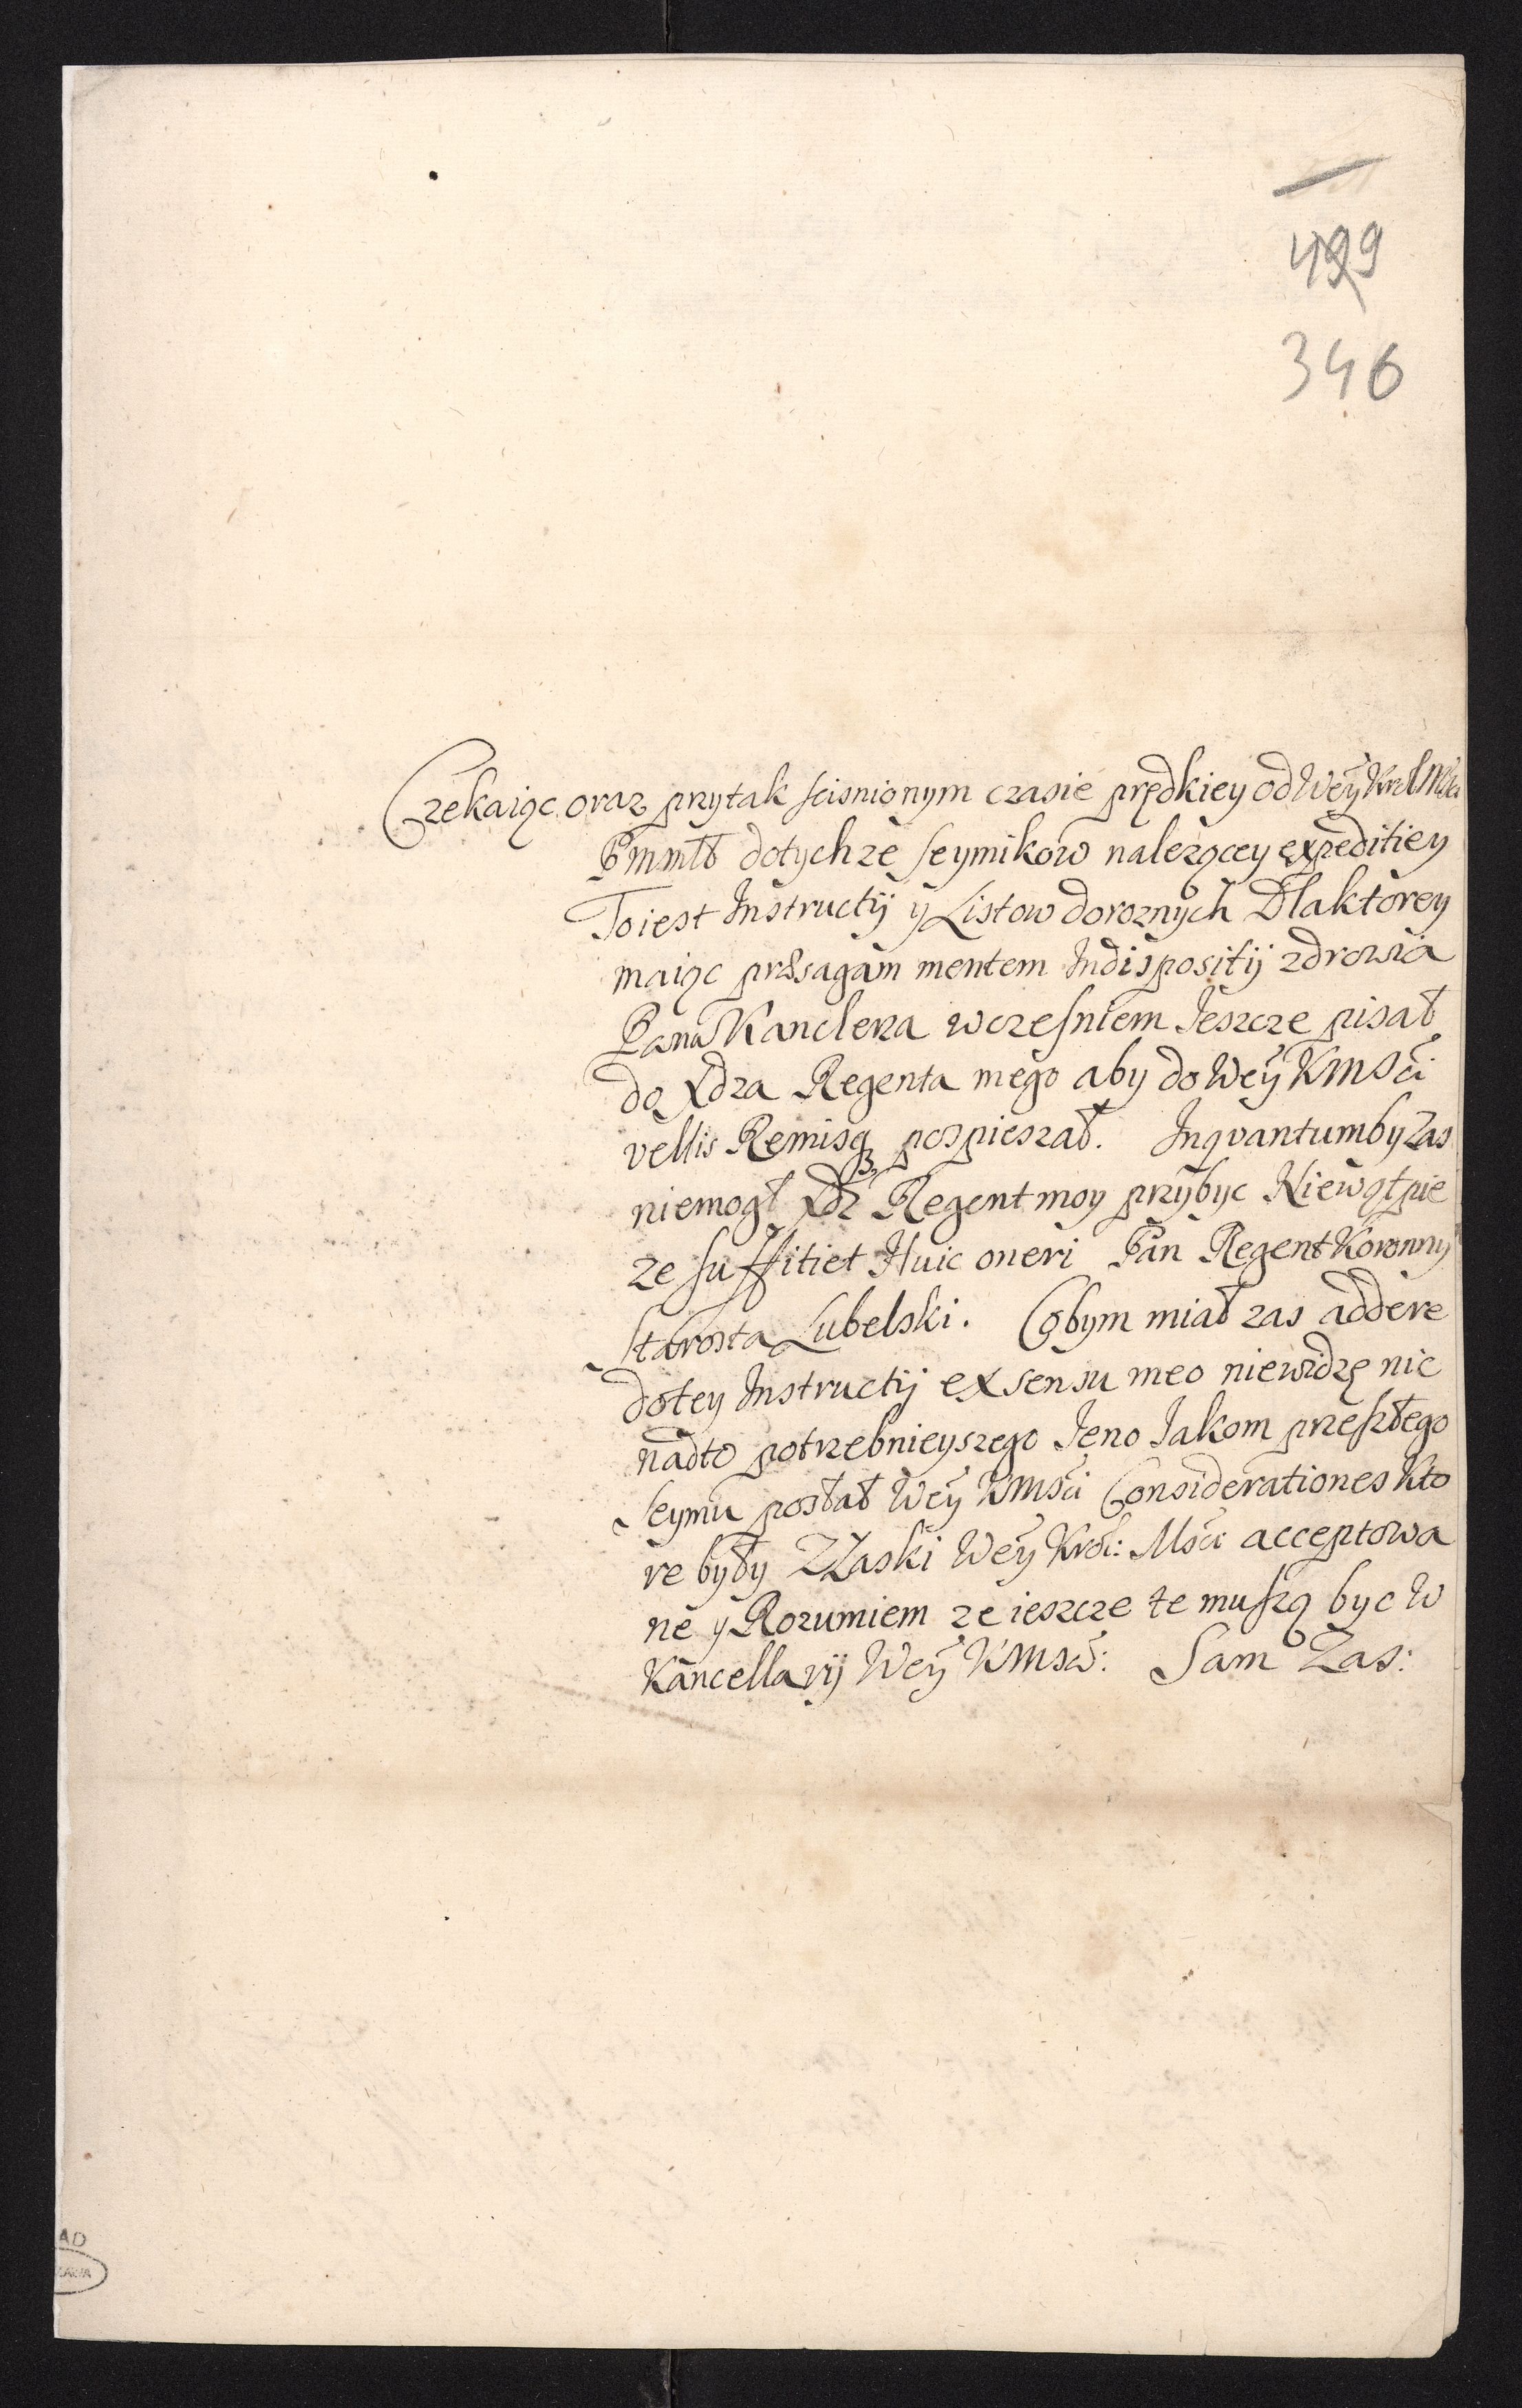 499
346
Czekaiąc oraz przytak scisnionym czasie prędkiey od Wey Krol Msci
PmmP dotychze seymikow nalezącey expeditiey
Toiest Instructij y Listow doroznych Dlaktorey
maiąc præsagam mentem Indispositij zdrowia
Pana Kanclerza wczesniem Jeszcze pisał
do Xdza Regenta mego aby do Wey KMSci
vellis Remisq3 pospieszał. Inqvantumby Zas
niemogł Xdz Regent moy przybyc Niewątpie
ze suffitiet Huic oneri Pan Regent Koronny
Starosta Lubelski. Cobym miał zas addere
dotey Instructij ex sensu meo niewidzę nic
nadto potrzebnieyszego Jeno Jakom przeszłego
Seymu posłał Wey KMSci Considerationes Kto
re były Z Łaski Wey Krol: Msci acceptowa
ne y Rozumiem ze ieszcze te muszą byc W
Kancellarij Wey KMSci: Sam Zas:
AD